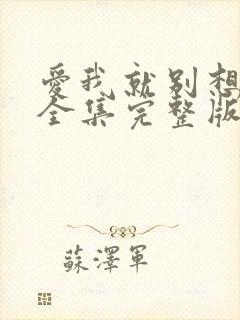 愛我就别想
全集完整版
蘇澤軍